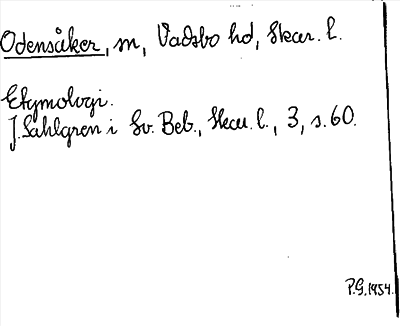 Odensåker, m, Vadsbo hd, Skar. l.
Etymologi.
J. Sahlgren i Sv. Beb., Skar. l., 3, s. 60.
P.G. 1954.